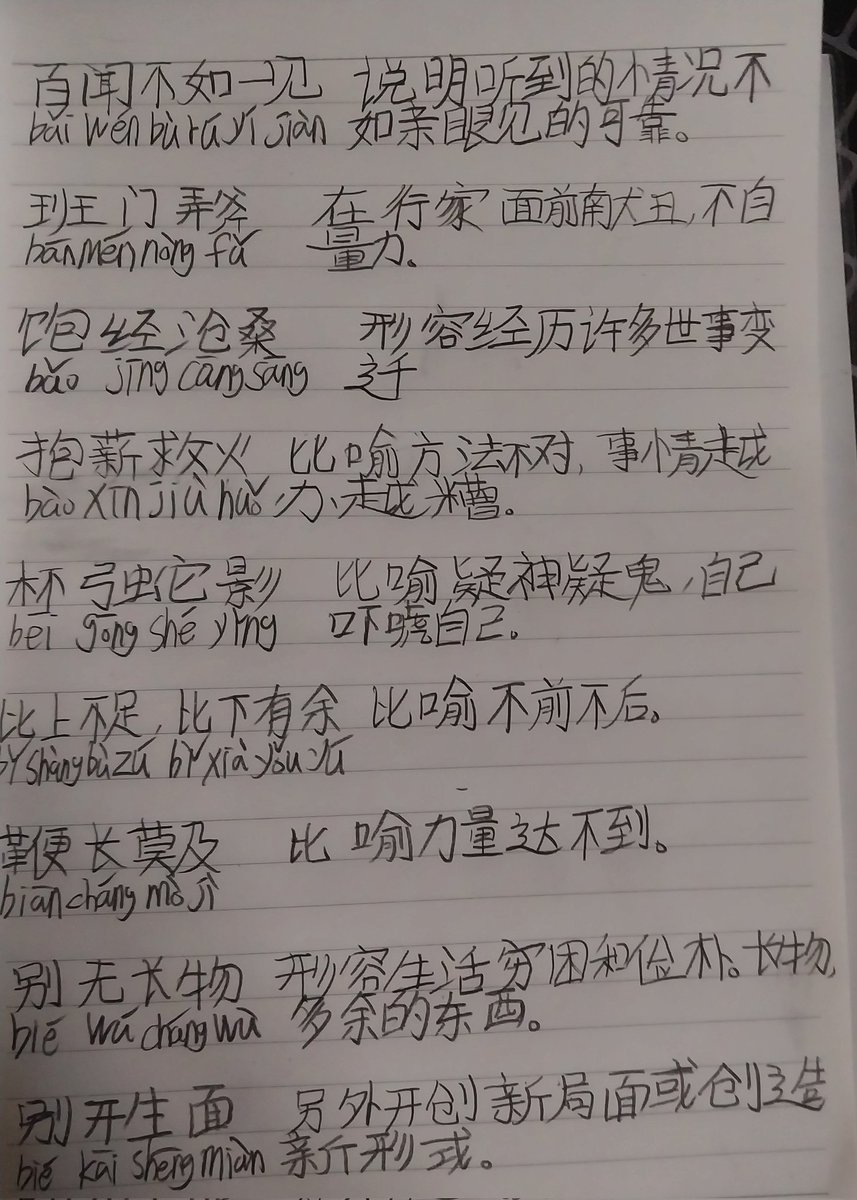 百闻不如一见 说明听到的情况不
bǎi wén bù rú yí jiàn 如亲眼见的可靠。
班门弄斧 在行家面前献丑,不自
bān mén nòng fǔ 量力。
饱经沧桑 形容经历许多世事变
bǎo jīng cāng sāng 迁
抱薪救火 比喻方法不对,事情越
bào xīn jiù huǒ 办越糟。
杯弓蛇影 比喻疑神疑鬼,自己
bēi gōng shé yǐng 吓唬自己。
比上不足,比下有余 比喻不前不后。
bǐ shàng bù zú bǐ xià yǒu yú
鞭长莫及 比喻力量达不到。
biān cháng mò jí
别无长物 形容生活穷困和俭朴。长物,
bié wú cháng wù 多余的东西。
别开生面 另外开创新局面或创造
bié kāi shēng miàn 新形式。